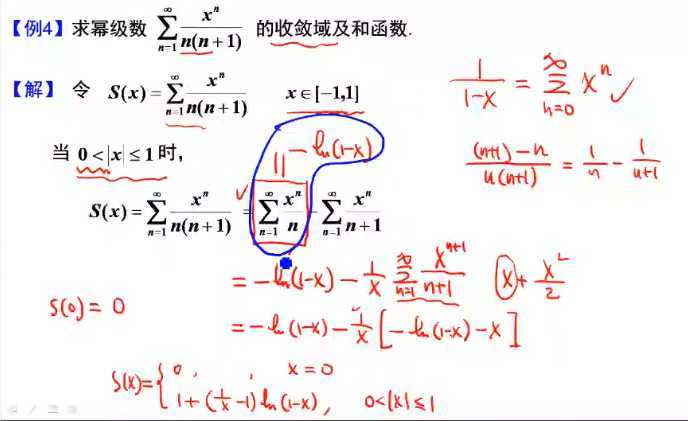 【例4】求幂级数 \sum_{n=1}^{\infty} \frac{x^n}{n(n+1)} 的收敛域及和函数.
\frac{1}{1-x} = \sum_{n=0}^{\infty} x^n ✓
【解】 令 S(x) = \sum_{n=1}^{\infty} \frac{x^n}{n(n+1)} x∈[-1,1]
\frac{(n+1)-n}{n(n+1)} = \frac{1}{n} - \frac{1}{n+1}
当 0<|x|≤1 时,
|| -ln(1-x)
S(x) = \sum_{n=1}^{\infty} \frac{x^n}{n(n+1)} = \sum_{n=1}^{\infty} \frac{x^n}{n} - \sum_{n=1}^{\infty} \frac{x^n}{n+1}
= -ln(1-x) - \frac{1}{x} \sum_{n=1}^{\infty} \frac{x^{n+1}}{n+1} x + \frac{x^2}{2}
S(0) = 0
= -ln(1-x) - \frac{1}{x} [-ln(1-x) - x]
S(x) = { 0, x=0
1 + (\frac{1}{x} - 1) ln(1-x), 0<|x|≤1